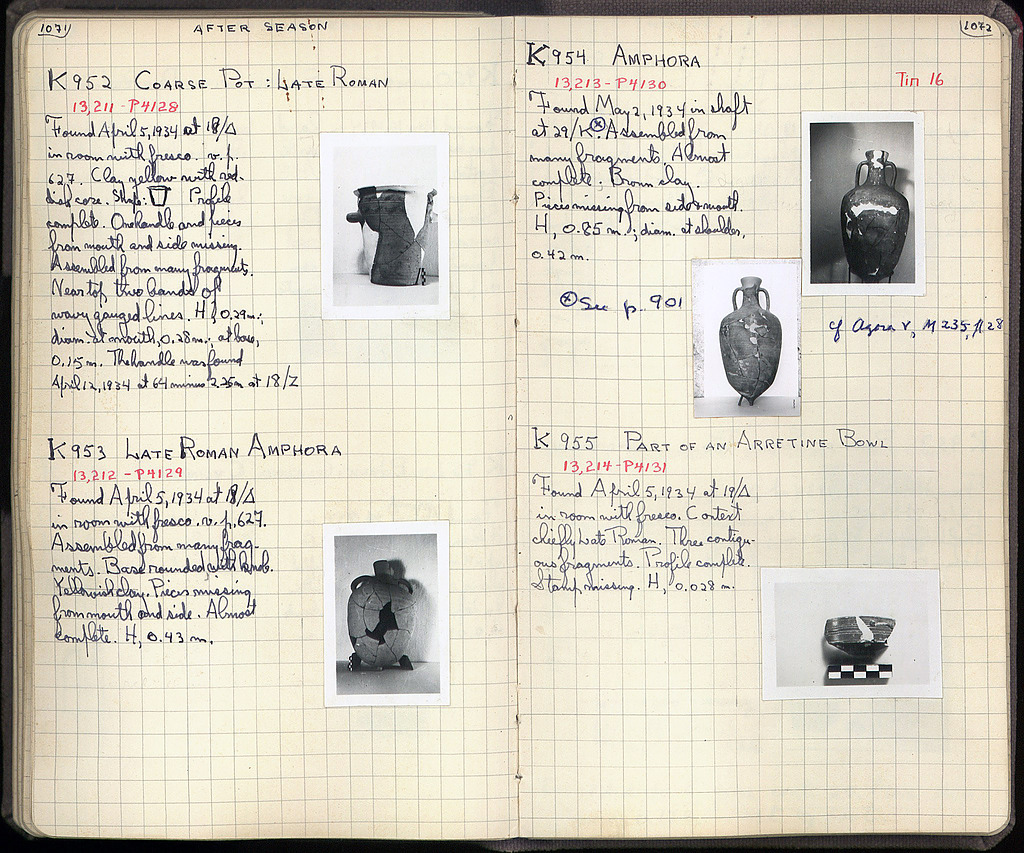 1071
AFTER SEASON
K 952 COARSE POT : LATE ROMAN
13,211 - P4128
Found April 5, 1934 at 18/Δ
in room with fresco. v. p.
627. Clay yellow with red-
dish core. Shape: Profile
complete. One handle and pieces
from mouth and side missing.
Assembled from many fragments.
Near top two bands of
wavy gauged lines. H, 0.29m.;
diam. at mouth, 0.28m.; at base,
0.15 m. The handle was found
April 12, 1934 at 64 minus 2.25m at 18/Z
K 953 LATE ROMAN AMPHORA
13,212 - P4129
Found April 5, 1934 at 18/Δ
in room with fresco. v. p. 627.
Assembled from many frag-
ments. Base rounded with knob.
Yellowish clay. Pieces missing
from mouth and side. Almost
complete. H, 0.43 m.
1072
K 954 AMPHORA
13,213 - P4130
Tin 16
Found May 2, 1934 in shaft
at 29/K ⊗. Assembled from
many fragments. Almost
complete. Brown clay.
Pieces missing from side & mouth.
H, 0.85 m.; diam. at shoulder,
0.42 m.
⊗ See p. 901
cf Agora V, M 235, 28
K 955 PART OF AN ARRETINE BOWL
13,214 - P4131
Found April 5, 1934 at 19/Δ
in room with fresco. Context
chiefly Late Roman. Three contigu-
ous fragments. Profile complete.
Stamp missing. H, 0.028 m.